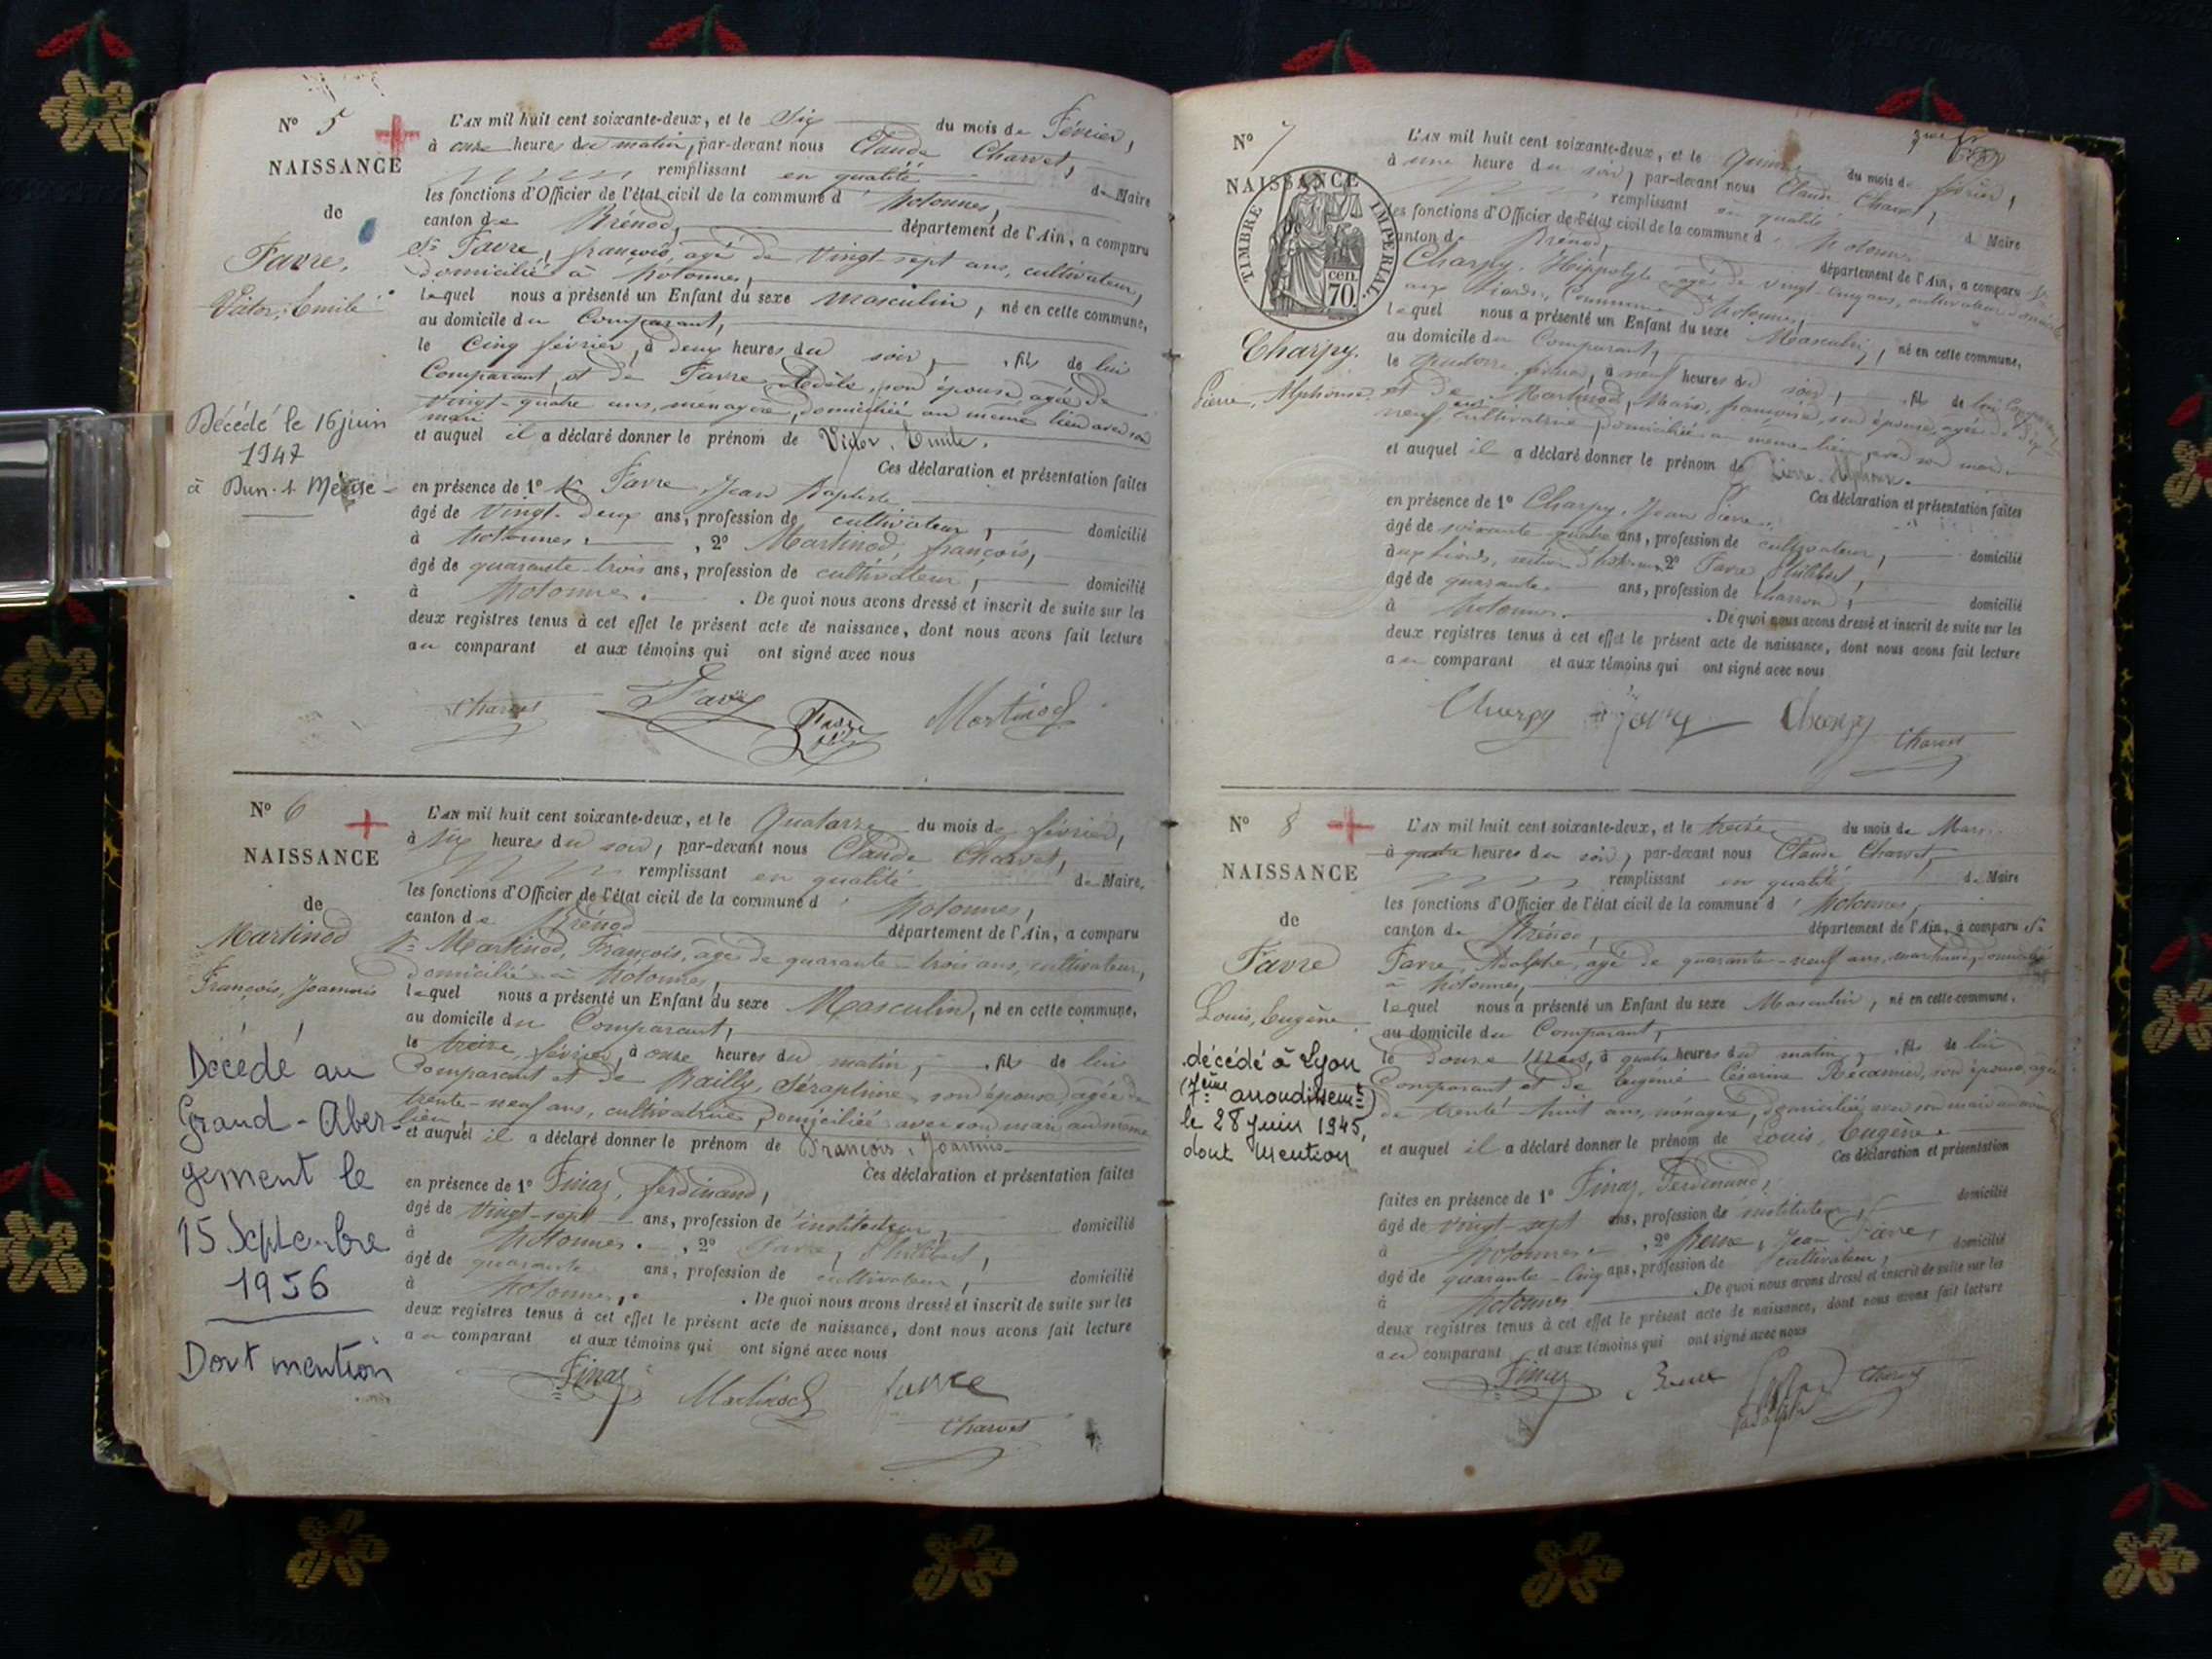 N° 5
NAISSANCE
de
Favre,
Victor, Emile
Décédé le 16 juin
1947
à Dun-s-Meuse
L'AN mil huit cent soixante-deux, et le Six du mois de Février,
à onze heures du matin, par-devant nous Claude Charvet,
remplissant en qualité de Maire
les fonctions d'Officier de l'état civil de la commune d'hotonnes,
canton de Brénod, département de l'Ain, a comparu
Sr Favre, françois, agé de vingt-sept ans, cultivateur,
domicilié à hotonnes,
lequel nous a présenté un Enfant du sexe masculin, né en cette commune,
au domicile du Comparant,
le Cinq février, à deux heures du soir, fils de lui
Comparant, et de Favre Adèle, son épouse agée de
vingt-quatre ans, menagère, domiciliée au même lieu avec son
mari
et auquel il a déclaré donner le prénom de Victor, Emile.
Ces déclaration et présentation faites
en présence de 1° Favre, Jean Baptiste
âgé de vingt-deux ans, profession de cultivateur, domicilié
à hotonnes. , 2° Martinod, françois,
âgé de quarante-trois ans, profession de cultivateur, domicilié
à hotonnes. . De quoi nous avons dressé et inscrit de suite sur les
deux registres tenus à cet effet le présent acte de naissance, dont nous avons fait lecture
au comparant et aux témoins qui ont signé avec nous
Charvet Favre Favre Martinod
N° 6
NAISSANCE
de
Martinod
François, Joannis
Décédé au
Grand-Aber-
gement le
15 Septembre
1956
Dont mention
L'AN mil huit cent soixante-deux, et le Quatorze du mois de février,
à six heures du soir, par-devant nous Claude Charvet,
remplissant en qualité de Maire,
les fonctions d'Officier de l'état civil de la commune d'hotonnes,
canton de Brénod département de l'Ain, a comparu
Sr Martinod, François, âgé de quarante-trois ans, cultivateur,
domicilié à hotonnes,
lequel nous a présenté un Enfant du sexe Masculin, né en cette commune,
au domicile du Comparant,
le treize février, à onze heures du matin, fils de lui
Comparant et de Bailly, Séraphine, son épouse, agée de
trente-neuf ans, cultivatrice, domiciliée avec son mari au même
lieu
et auquel il a déclaré donner le prénom de François, Joannis
Ces déclaration et présentation faites
en présence de 1° Finaz, ferdinand,
âgé de vingt-sept ans, profession de instituteur, domicilié
à hotonnes. , 2° Favre, Philibert,
âgé de quarante ans, profession de cultivateur, domicilié
à hotonnes. . De quoi nous avons dressé et inscrit de suite sur les
deux registres tenus à cet effet le présent acte de naissance, dont nous avons fait lecture
au comparant et aux témoins qui ont signé avec nous
Finaz Martinod favre
Charvet
N° 7
NAISSANCE
de
TIMBRE IMPERIAL.
70 cen.
Charpy.
Pierre, Alphonse.
L'AN mil huit cent soixante-deux, et le quinze du mois de février,
à une heure du soir, par-devant nous Claude Charvet,
remplissant en qualité de Maire
les fonctions d'Officier de l'état civil de la commune d'hotonnes
canton de Brénod, département de l'Ain, a comparu Sr
Charpy, Hippolyte agé de vingt-cinq ans, cultivateur domicilié
aux Commune d'hotonnes,
lequel nous a présenté un Enfant du sexe Masculin, né en cette commune,
au domicile du Comparant,
le quatorze février, à neuf heures du soir, fils de lui Comparant
et de Martinod, Marie, françoise, son épouse, agée de dix
neuf ans, cultivatrice domiciliée au même lieu avec son mari
et auquel il a déclaré donner le prénom de Pierre, Alphonse.
Ces déclaration et présentation faites
en présence de 1° Charpy, Jean Pierre,
âgé de soixante-quatre ans, profession de cultivateur, domicilié
aux section d'hotonnes 2° Favre, Philibert,
âgé de quarante ans, profession de charron, domicilié
à hotonnes. . De quoi nous avons dressé et inscrit de suite sur les
deux registres tenus à cet effet le présent acte de naissance, dont nous avons fait lecture
au comparant et aux témoins qui ont signé avec nous
Charpy favre Charpy Charvet
N° 8
NAISSANCE
de
Favre
Louis, Eugène
décédé à Lyon
(7ème arrondissemt)
le 28 Juin 1945,
dont mention
L'AN mil huit cent soixante-deux, et le treize du mois de Mars
à quatre heures du soir, par-devant nous Claude Charvet,
remplissant en qualité de Maire
les fonctions d'Officier de l'état civil de la commune d'hotonnes,
canton de Brénod, département de l'Ain, a comparu Sr
Favre, Adolphe, agé de quarante-neuf ans, marchand, domicilié
à hotonnes,
lequel nous a présenté un Enfant du sexe Masculin, né en cette commune,
au domicile du Comparant,
le douze Mars, à quatre heures du matin, fils de lui
Comparant et de Eugénie Césarine Récamier, son épouse, agée
de trente-huit ans, ménagère, domiciliée avec son mari au même
et auquel il a déclaré donner le prénom de Louis, Eugène.
Ces déclaration et présentation
faites en présence de 1° Finaz, Ferdinand,
âgé de vingt-sept ans, profession de instituteur, domicilié
à hotonnes. , 2° Jean Pierre,
âgé de quarante-cinq ans, profession de cultivateur, domicilié
à hotonnes. . De quoi nous avons dressé et inscrit de suite sur les
deux registres tenus à cet effet le présent acte de naissance, dont nous avons fait lecture
au comparant et aux témoins qui ont signé avec nous
Finaz Charvet